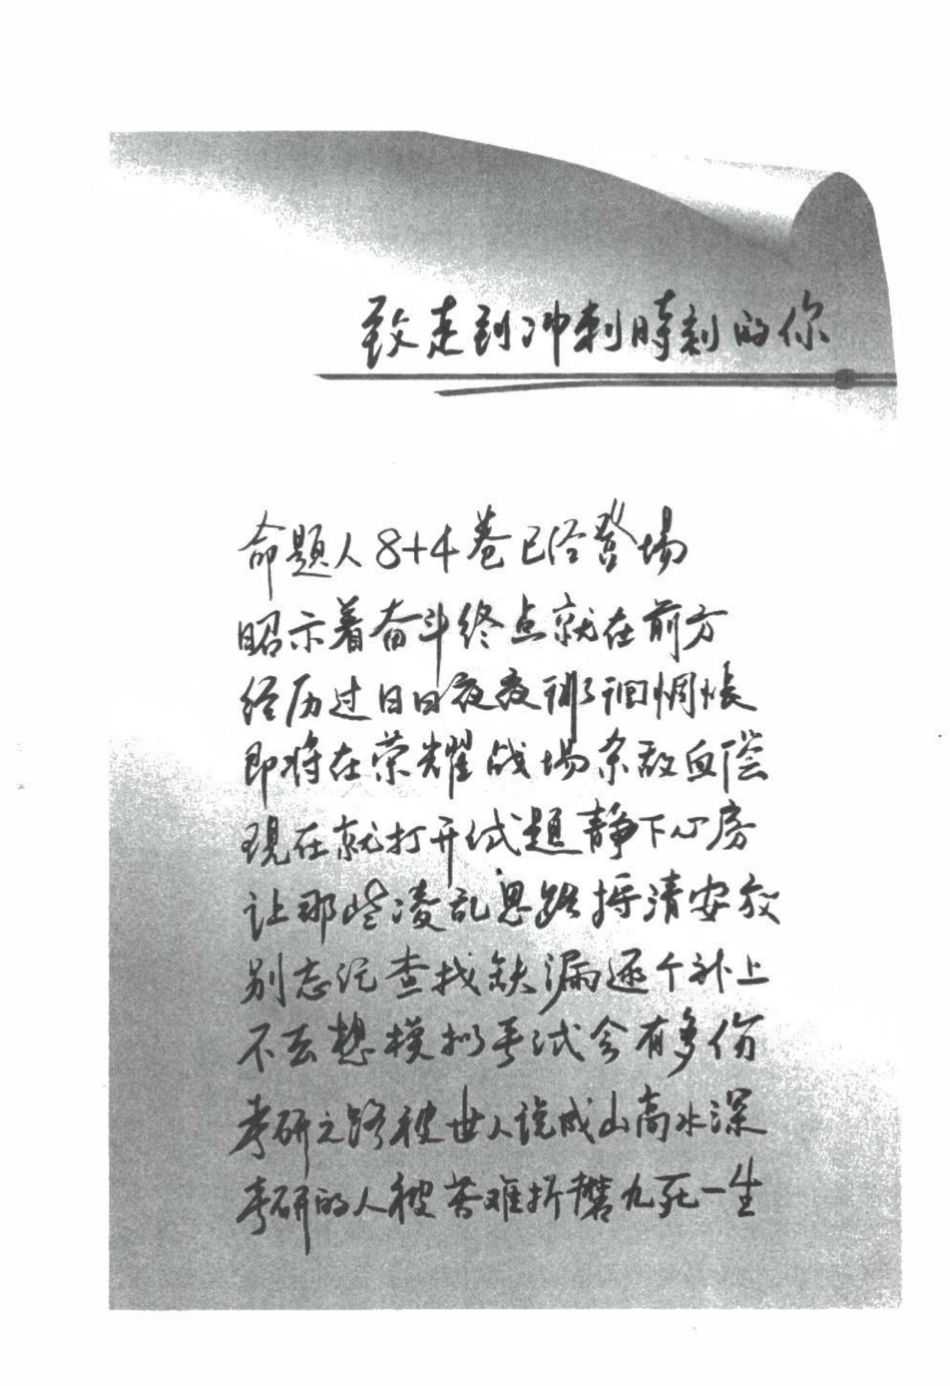 致走到冲刺時刻的你
命题人8+4卷已经登場
昭示着奋斗终点就在前方
经历过日日夜夜彷徊惆怅
即将在荣耀战場杀敌血偿
現在就打开试题静下心房
让那些凌乱思路捋清安放
别忘记查找缺漏逐个补上
不去想模拟考试会有多伤
考研之路被世人说成山高水深
考研的人被苦难折磨九死一生